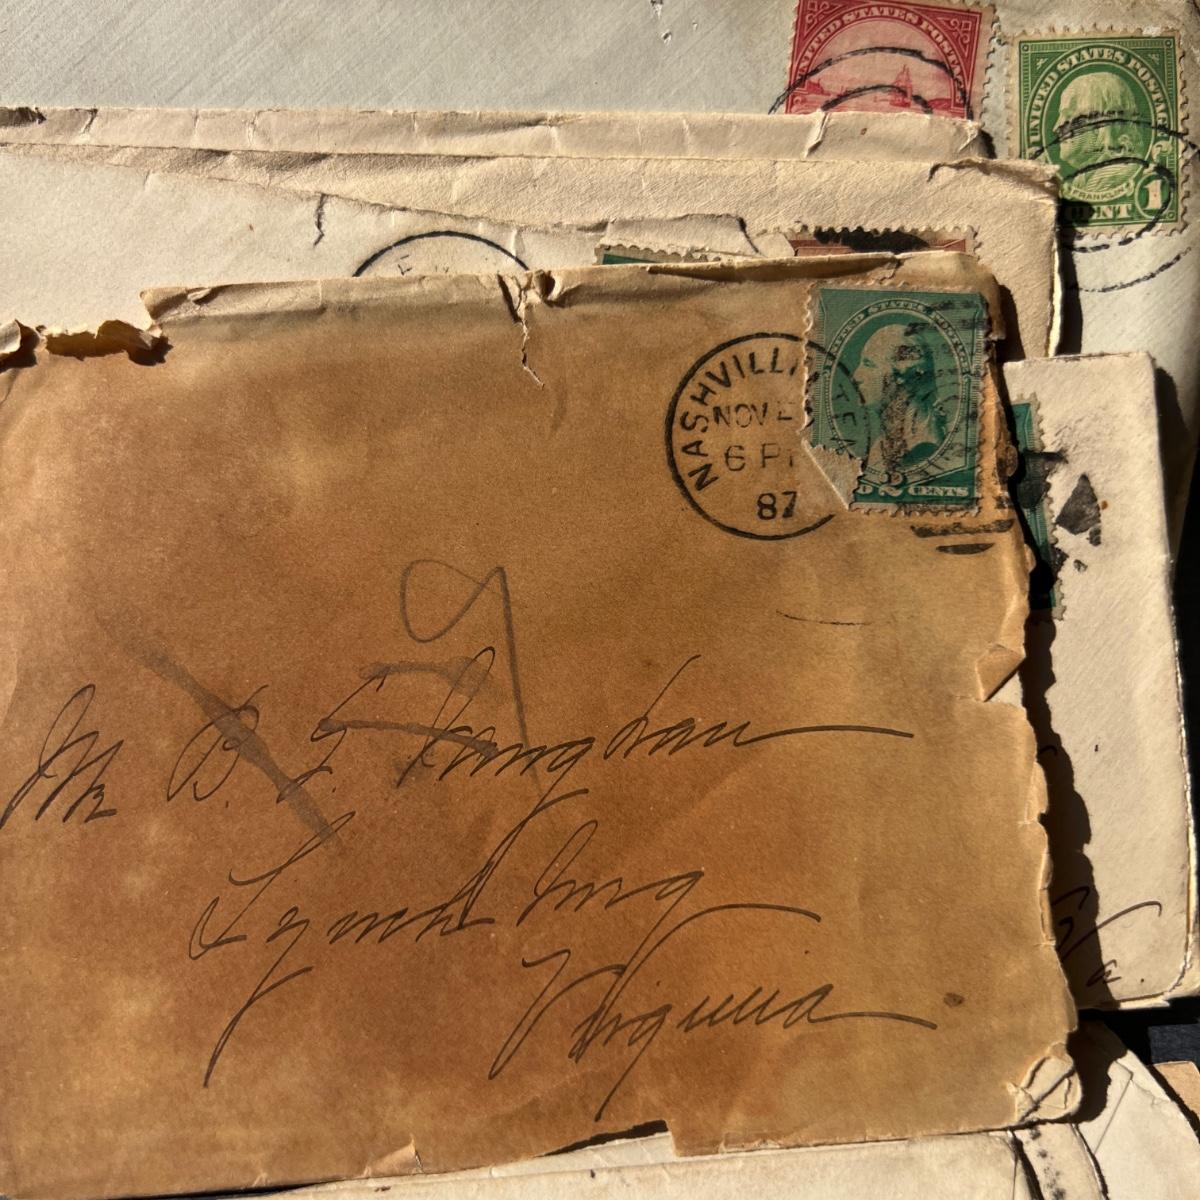 UNITED STATES POSTAGE
UNITED STATES POSTAGE
FRANKLIN
1
CENT
UNITED STATES POSTAGE
2 CENTS
NASHVILLE TEN
NOV
6 P
87
19
Mr B.
Lynchburg
Virginia
Va.